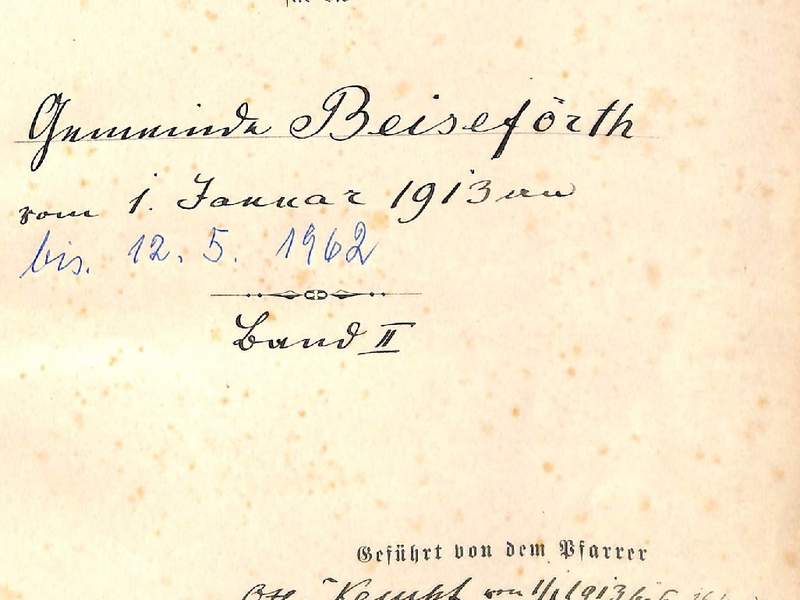 Gemeinde Beiseförth
vom 1. Januar 1913 an
bis. 12. 5. 1962
Band II
Geführt von dem Pfarrer
Kempf von 1/1 1913 bis